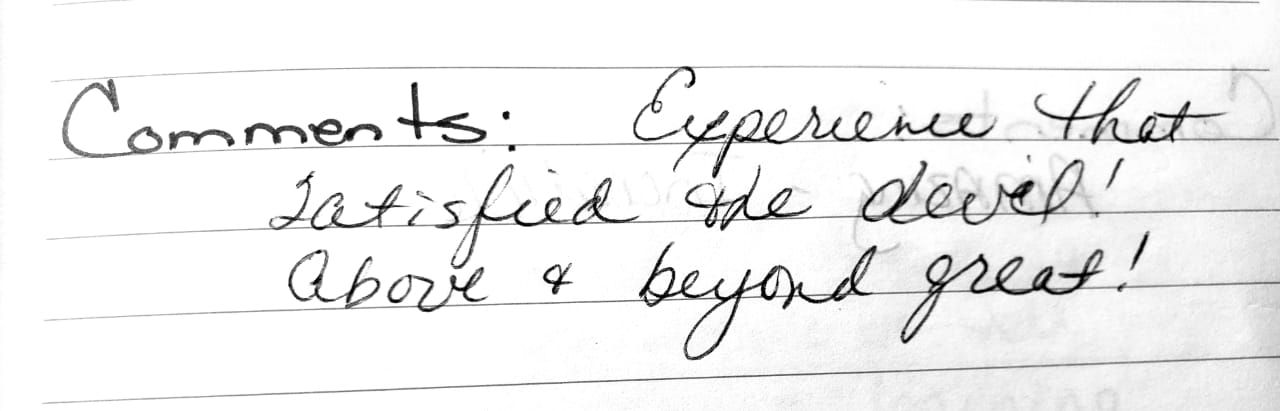 Comments: Experience that
satisfied the devil!
Above & beyond great!